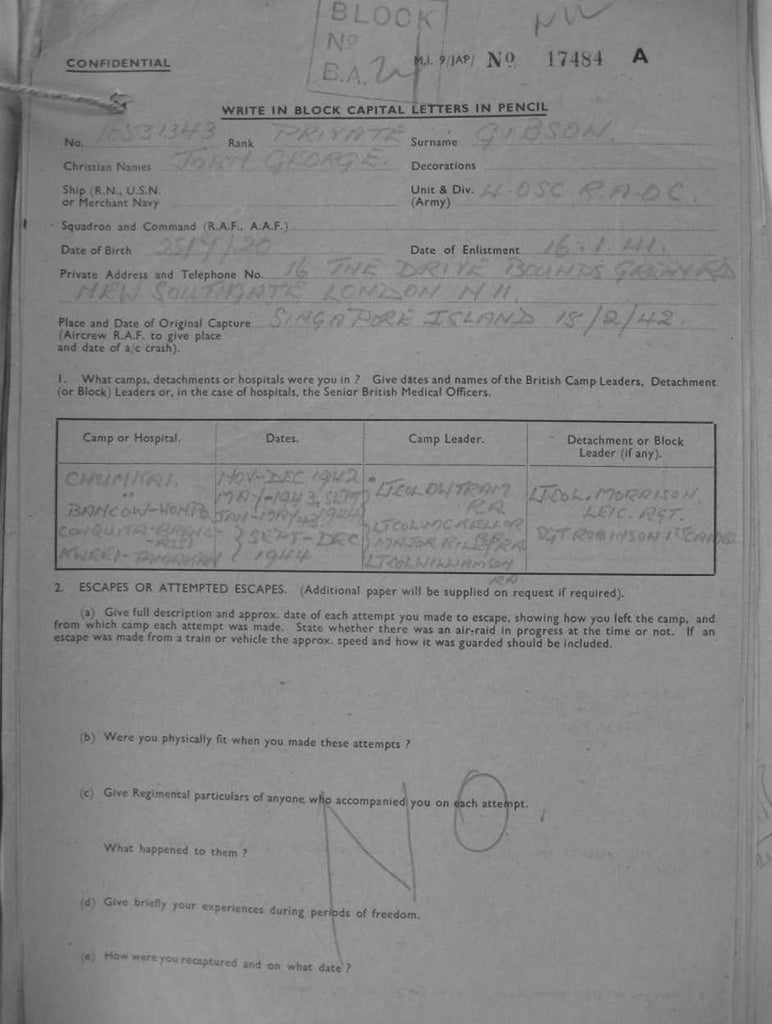 BLOCK
No
B.A.
CONFIDENTIAL
M.I. 9/JAP/ No 17484 A
WRITE IN BLOCK CAPITAL LETTERS IN PENCIL
No. Rank PRIVATE Surname GIBSON.
Christian Names JOHN GEORGE. Decorations
Ship (R.N., U.S.N. Unit & Div. 4 OSC R.A.O.C.
or Merchant Navy (Army)
Squadron and Command (R.A.F., A.A.F.)
Date of Birth Date of Enlistment 16.1.41.
Private Address and Telephone No. 16 THE DRIVE BOUNDS GREEN RD
NEW SOUTHGATE LONDON N 11.
Place and Date of Original Capture SINGAPORE ISLAND 15/2/42.
(Aircrew R.A.F. to give place
and date of a/c crash).
1. What camps, detachments or hospitals were you in ? Give dates and names of the British Camp Leaders, Detachment
(or Block) Leaders or, in the case of hospitals, the Senior British Medical Officers.
Camp or Hospital. Dates. Camp Leader. Detachment or Block
Leader (if any).
CHUNKAI. NOV-DEC 1942
MAY-1943, SEPT LT COL OWTRAM LT COL. MORRISON
R.A. LEIC. RGT.
LT COL MCKELLOR SGT ROBINSON
SEPT-DEC MAJOR
1944 LT COL WILLIAMSON
RA
2. ESCAPES OR ATTEMPTED ESCAPES. (Additional paper will be supplied on request if required).
(a) Give full description and approx. date of each attempt you made to escape, showing how you left the camp, and
from which camp each attempt was made. State whether there was an air-raid in progress at the time or not. If an
escape was made from a train or vehicle the approx. speed and how it was guarded should be included.
(b) Were you physically fit when you made these attempts ?
(c) Give Regimental particulars of anyone who accompanied you on each attempt.
NO
What happened to them ?
(d) Give briefly your experiences during periods of freedom.
(e) How were you recaptured and on what date ?